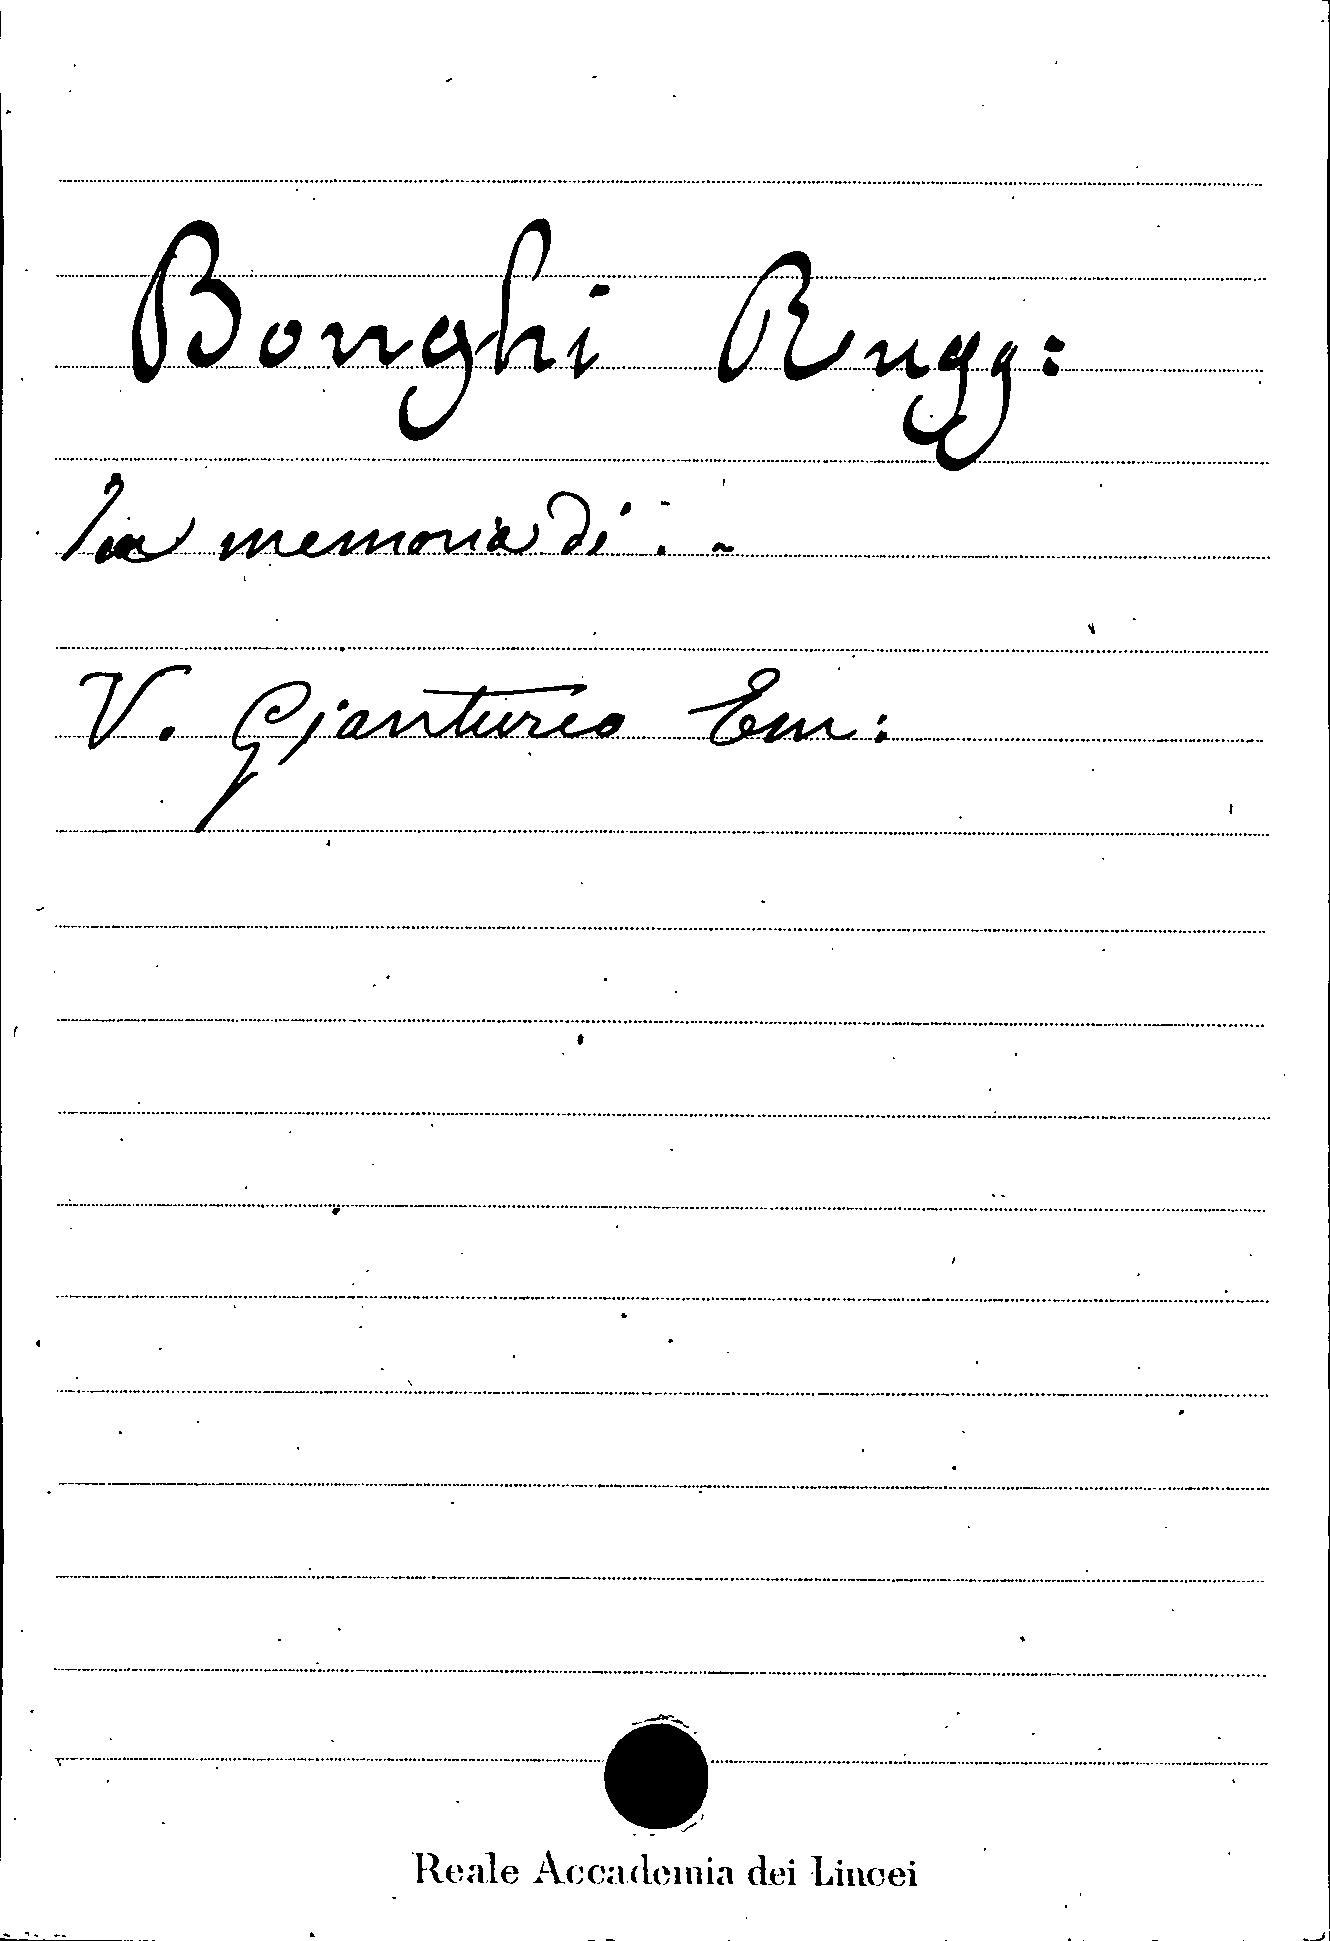 Bonghi Rugg:
In memoria di . .
V. Gianturco Em:
Reale Accademia dei Lincei